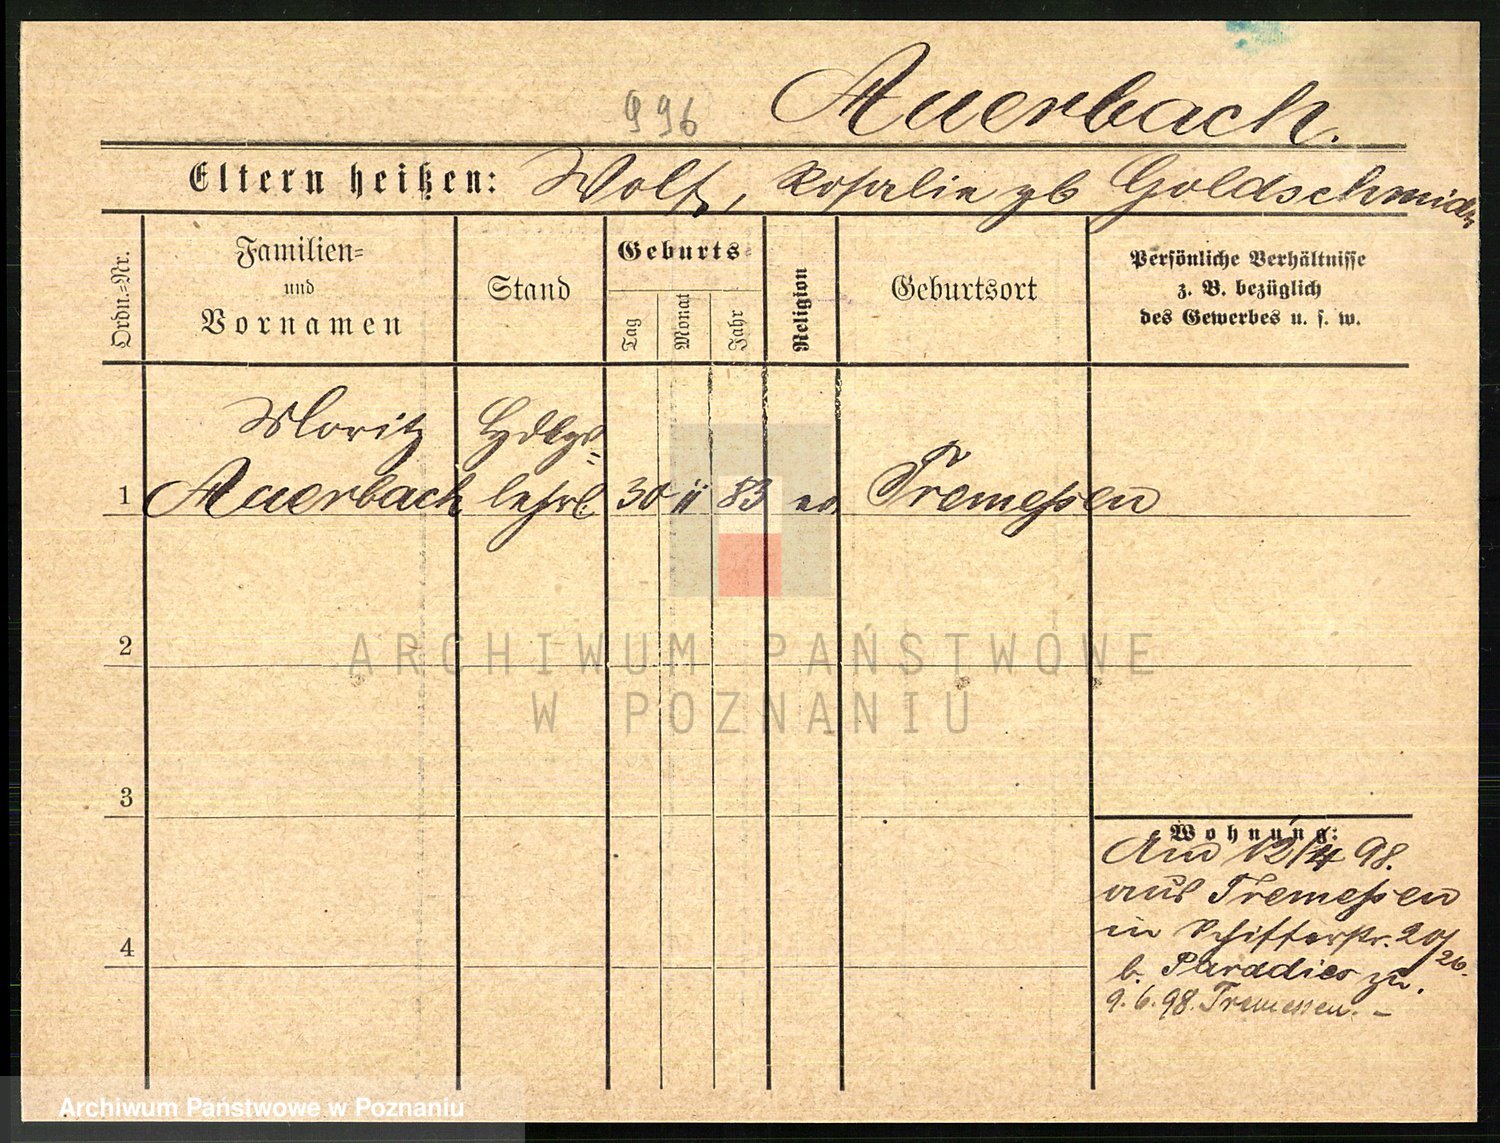 996
Auerbach.
Eltern heißen: Wolf, Rosalie gb Goldschmidt
Ordn.=Nr.
Familien=
und
Vornamen
Stand
Geburts=
Tag
Monat
Jahr
Religion
Geburtsort
Persönliche Verhältnisse
z. B. bezüglich
des Gewerbes u. s. w.
Moritz Hdlgs=
1 Auerbach lehrl. 30 11 83 Tremessen
2
ARCHIWUM PAŃSTWOWE
W POZNANIU
3
Wohnung:
Am 12/4 98.
aus Tremessen
in Schifferstr. 20/26.
b. Paradies zu.
9.6.98. Tremessen. –
4
Archiwum Państwowe w Poznaniu